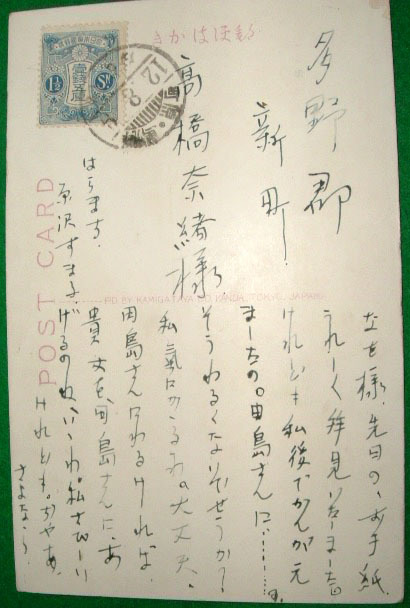 きかは
1½ Sn
多野郡
新町
高橋奈緒様
はらまち、
原沢すま子、
POST CARD
なを様、先日の、お手紙
うれしく拝見いたしました
けれども私後でかんがえ
ましたの。田島さんに………。
そうわるくないでせうか?
私氣にかゝるわ。大丈夫、
田島さんにわるければ
貴女を、田島さんに、あ
げるのね、いゝわ。私さびしい
けれども。ぢやあ、
さよなら